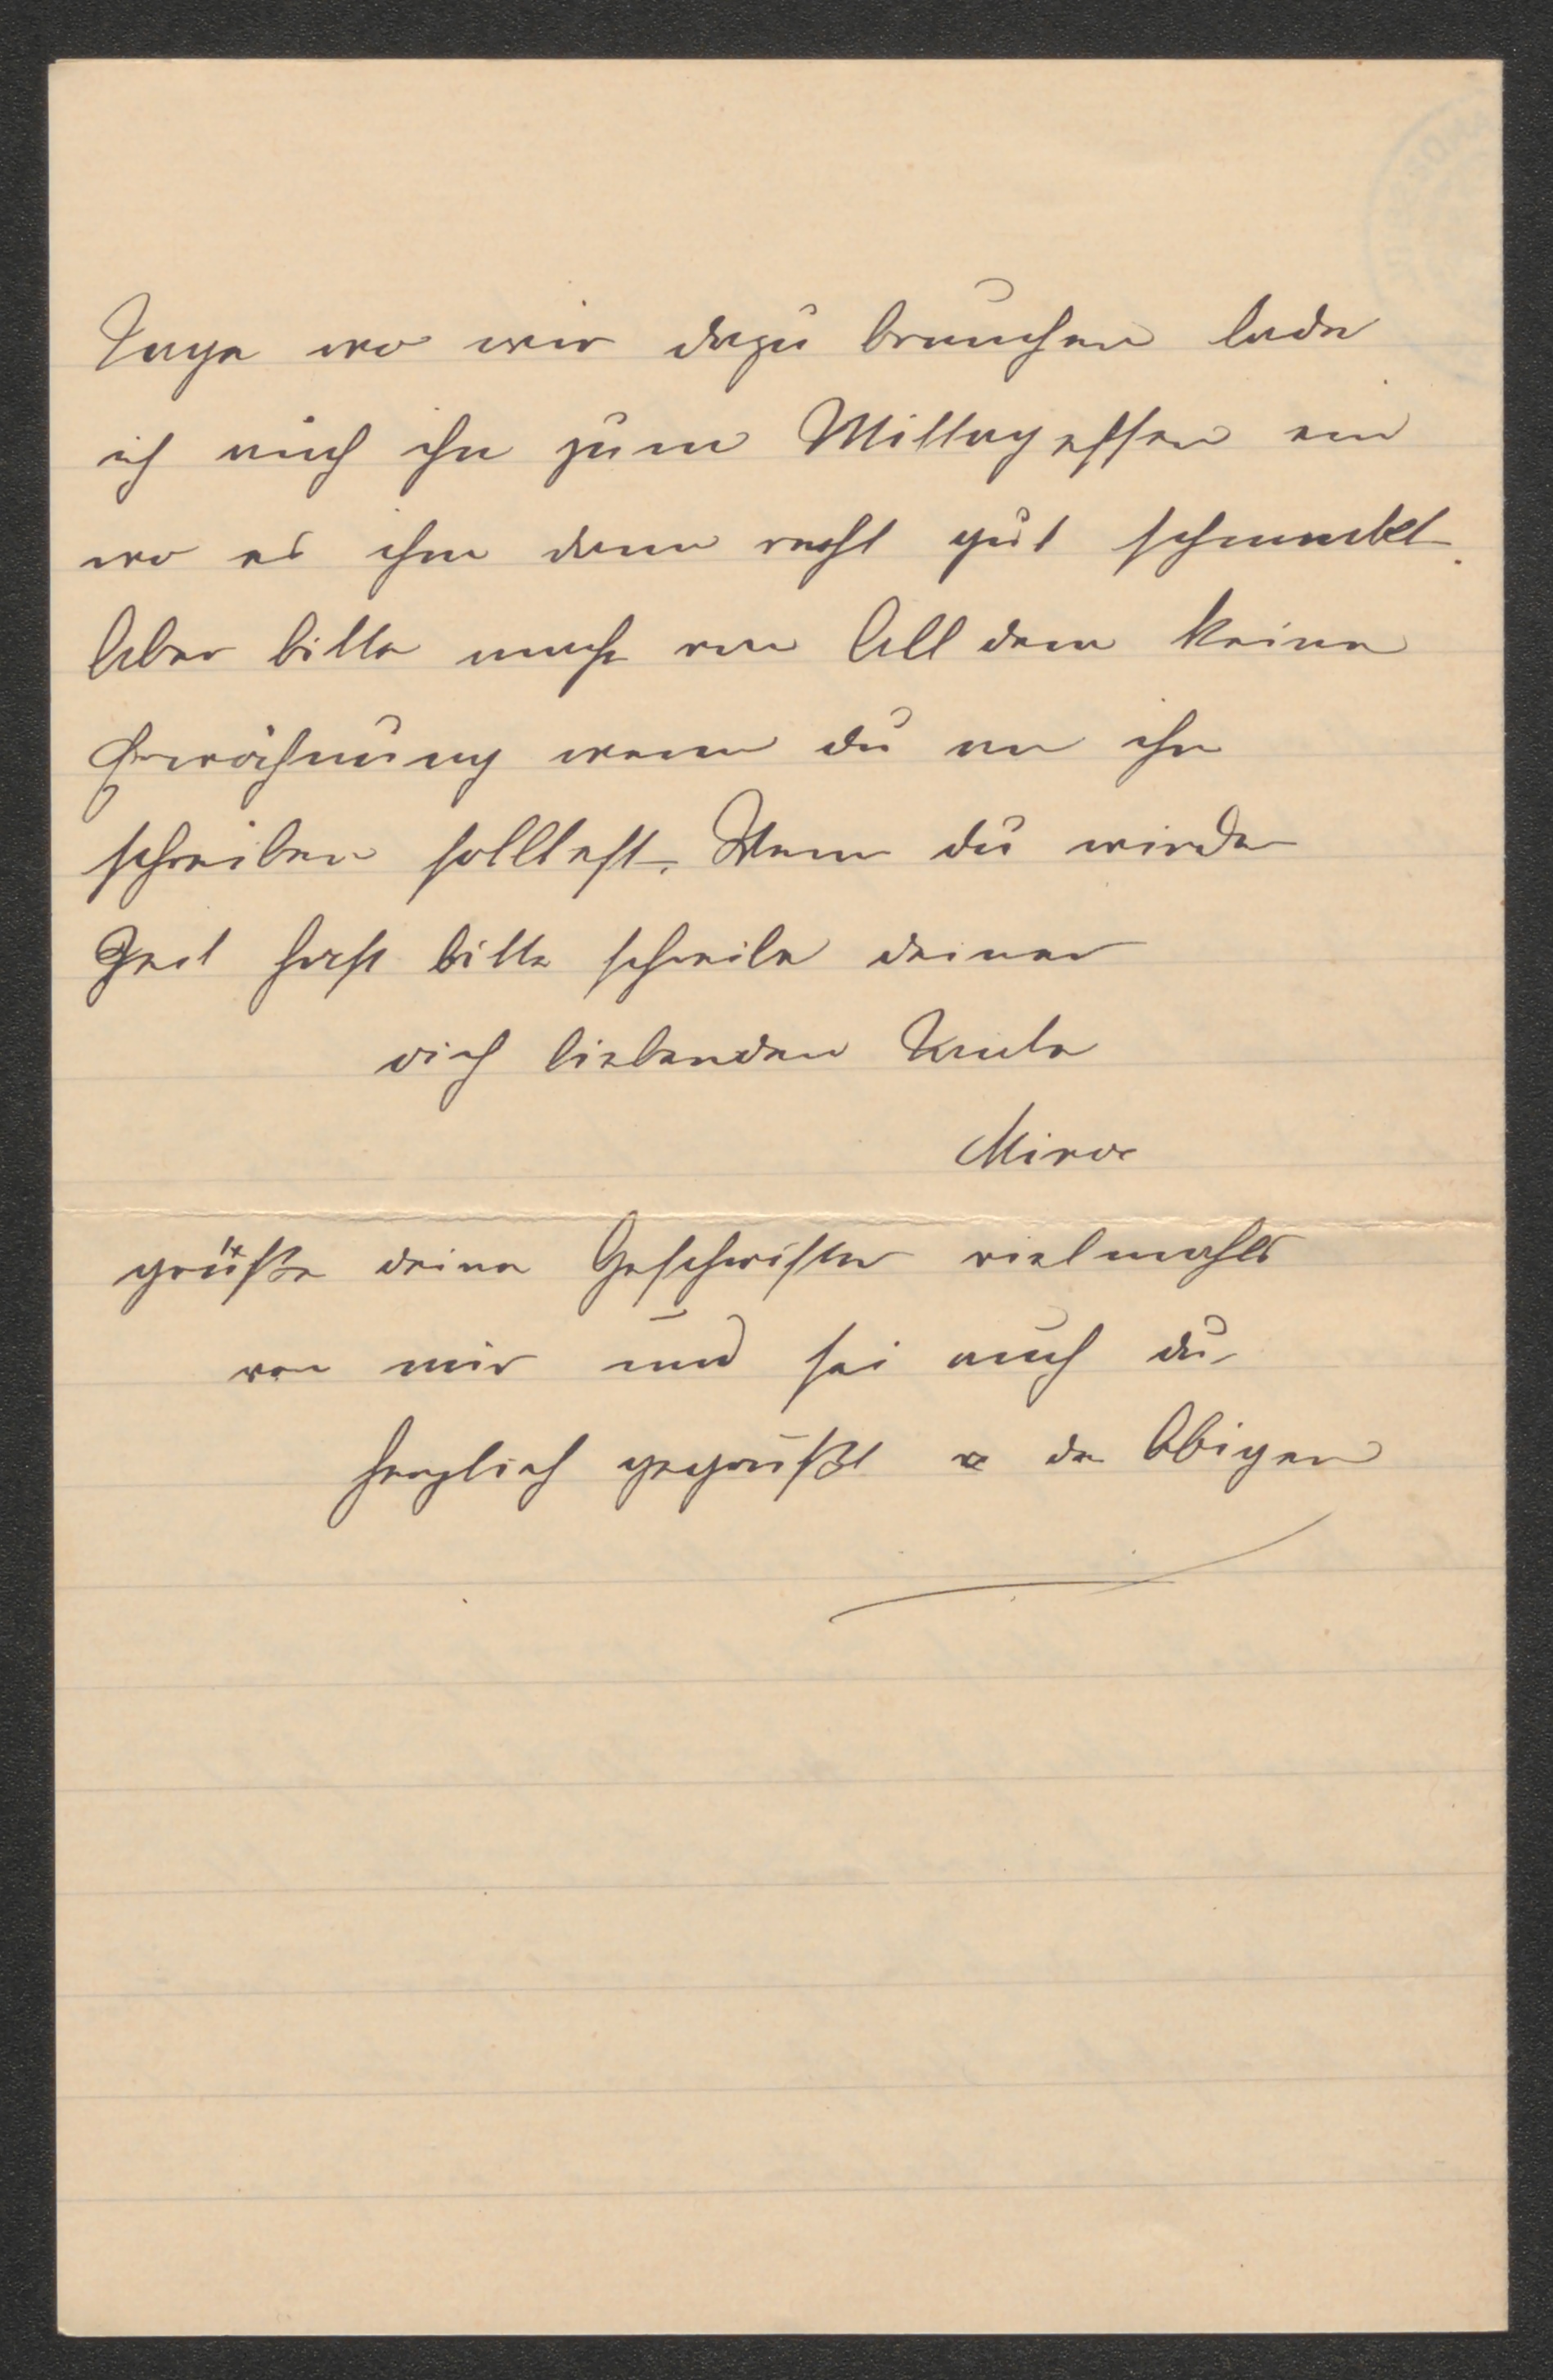 Tage wo wir dazu brauchen lade
ich auch ihn zum Mittagessen ein
wo es ihm dann recht gut schmeckt.
Aber bitte mache von All dem keine
Erwähnung wenn du an ihn
schreiben solltest. Wenn du wieder
Zeit hast bitte schreibe deiner
dich liebenden Tante
grüße deine Geschwister vielmahls
von mir und sei auch du
herzlich gegrüßt v der Obigen